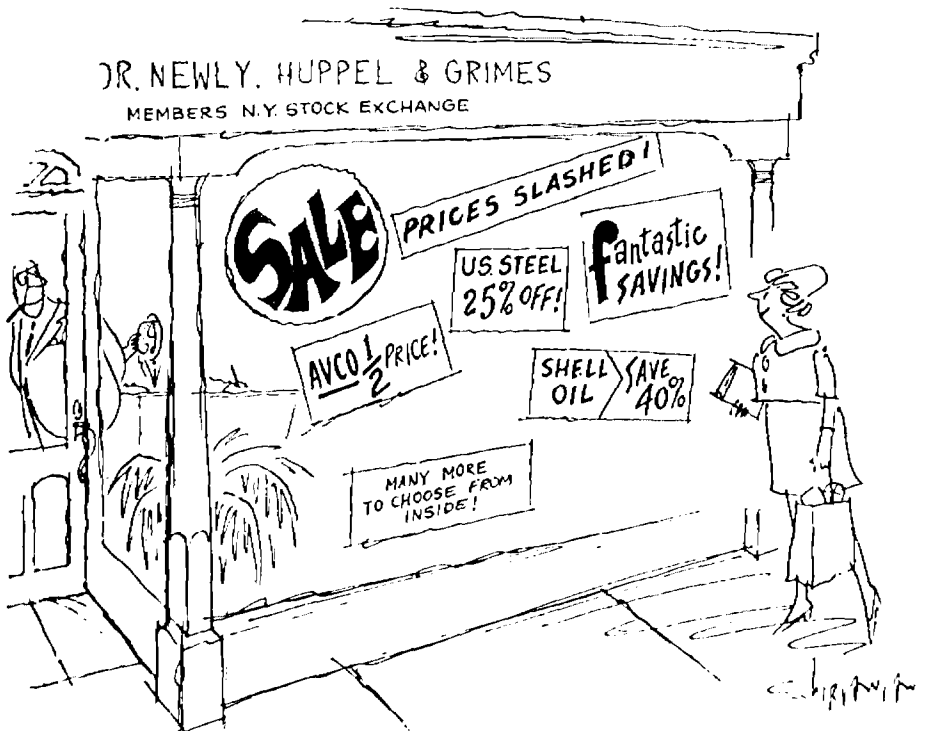 R. NEWLY, HUPPEL & GRIMES
MEMBERS N.Y. STOCK EXCHANGE
SALE
PRICES SLASHED!
fantastic
SAVINGS!
U.S. STEEL
25% OFF!
AVCO 1/2 PRICE!
SHELL
OIL
SAVE
40%
MANY MORE
TO CHOOSE FROM
INSIDE!